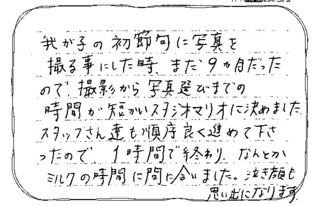 我が子の初節句に写真を
撮る事にした時、まだ9ヵ月だった
ので、撮影から写真選びまでの
時間が短かいスタジオマリオに決めました。
スタッフさん達も順序良く進めて下さ
ったので、1時間で終わり、なんとか
ミルクの時間に間に合いました。泣き顔も
思い出になります